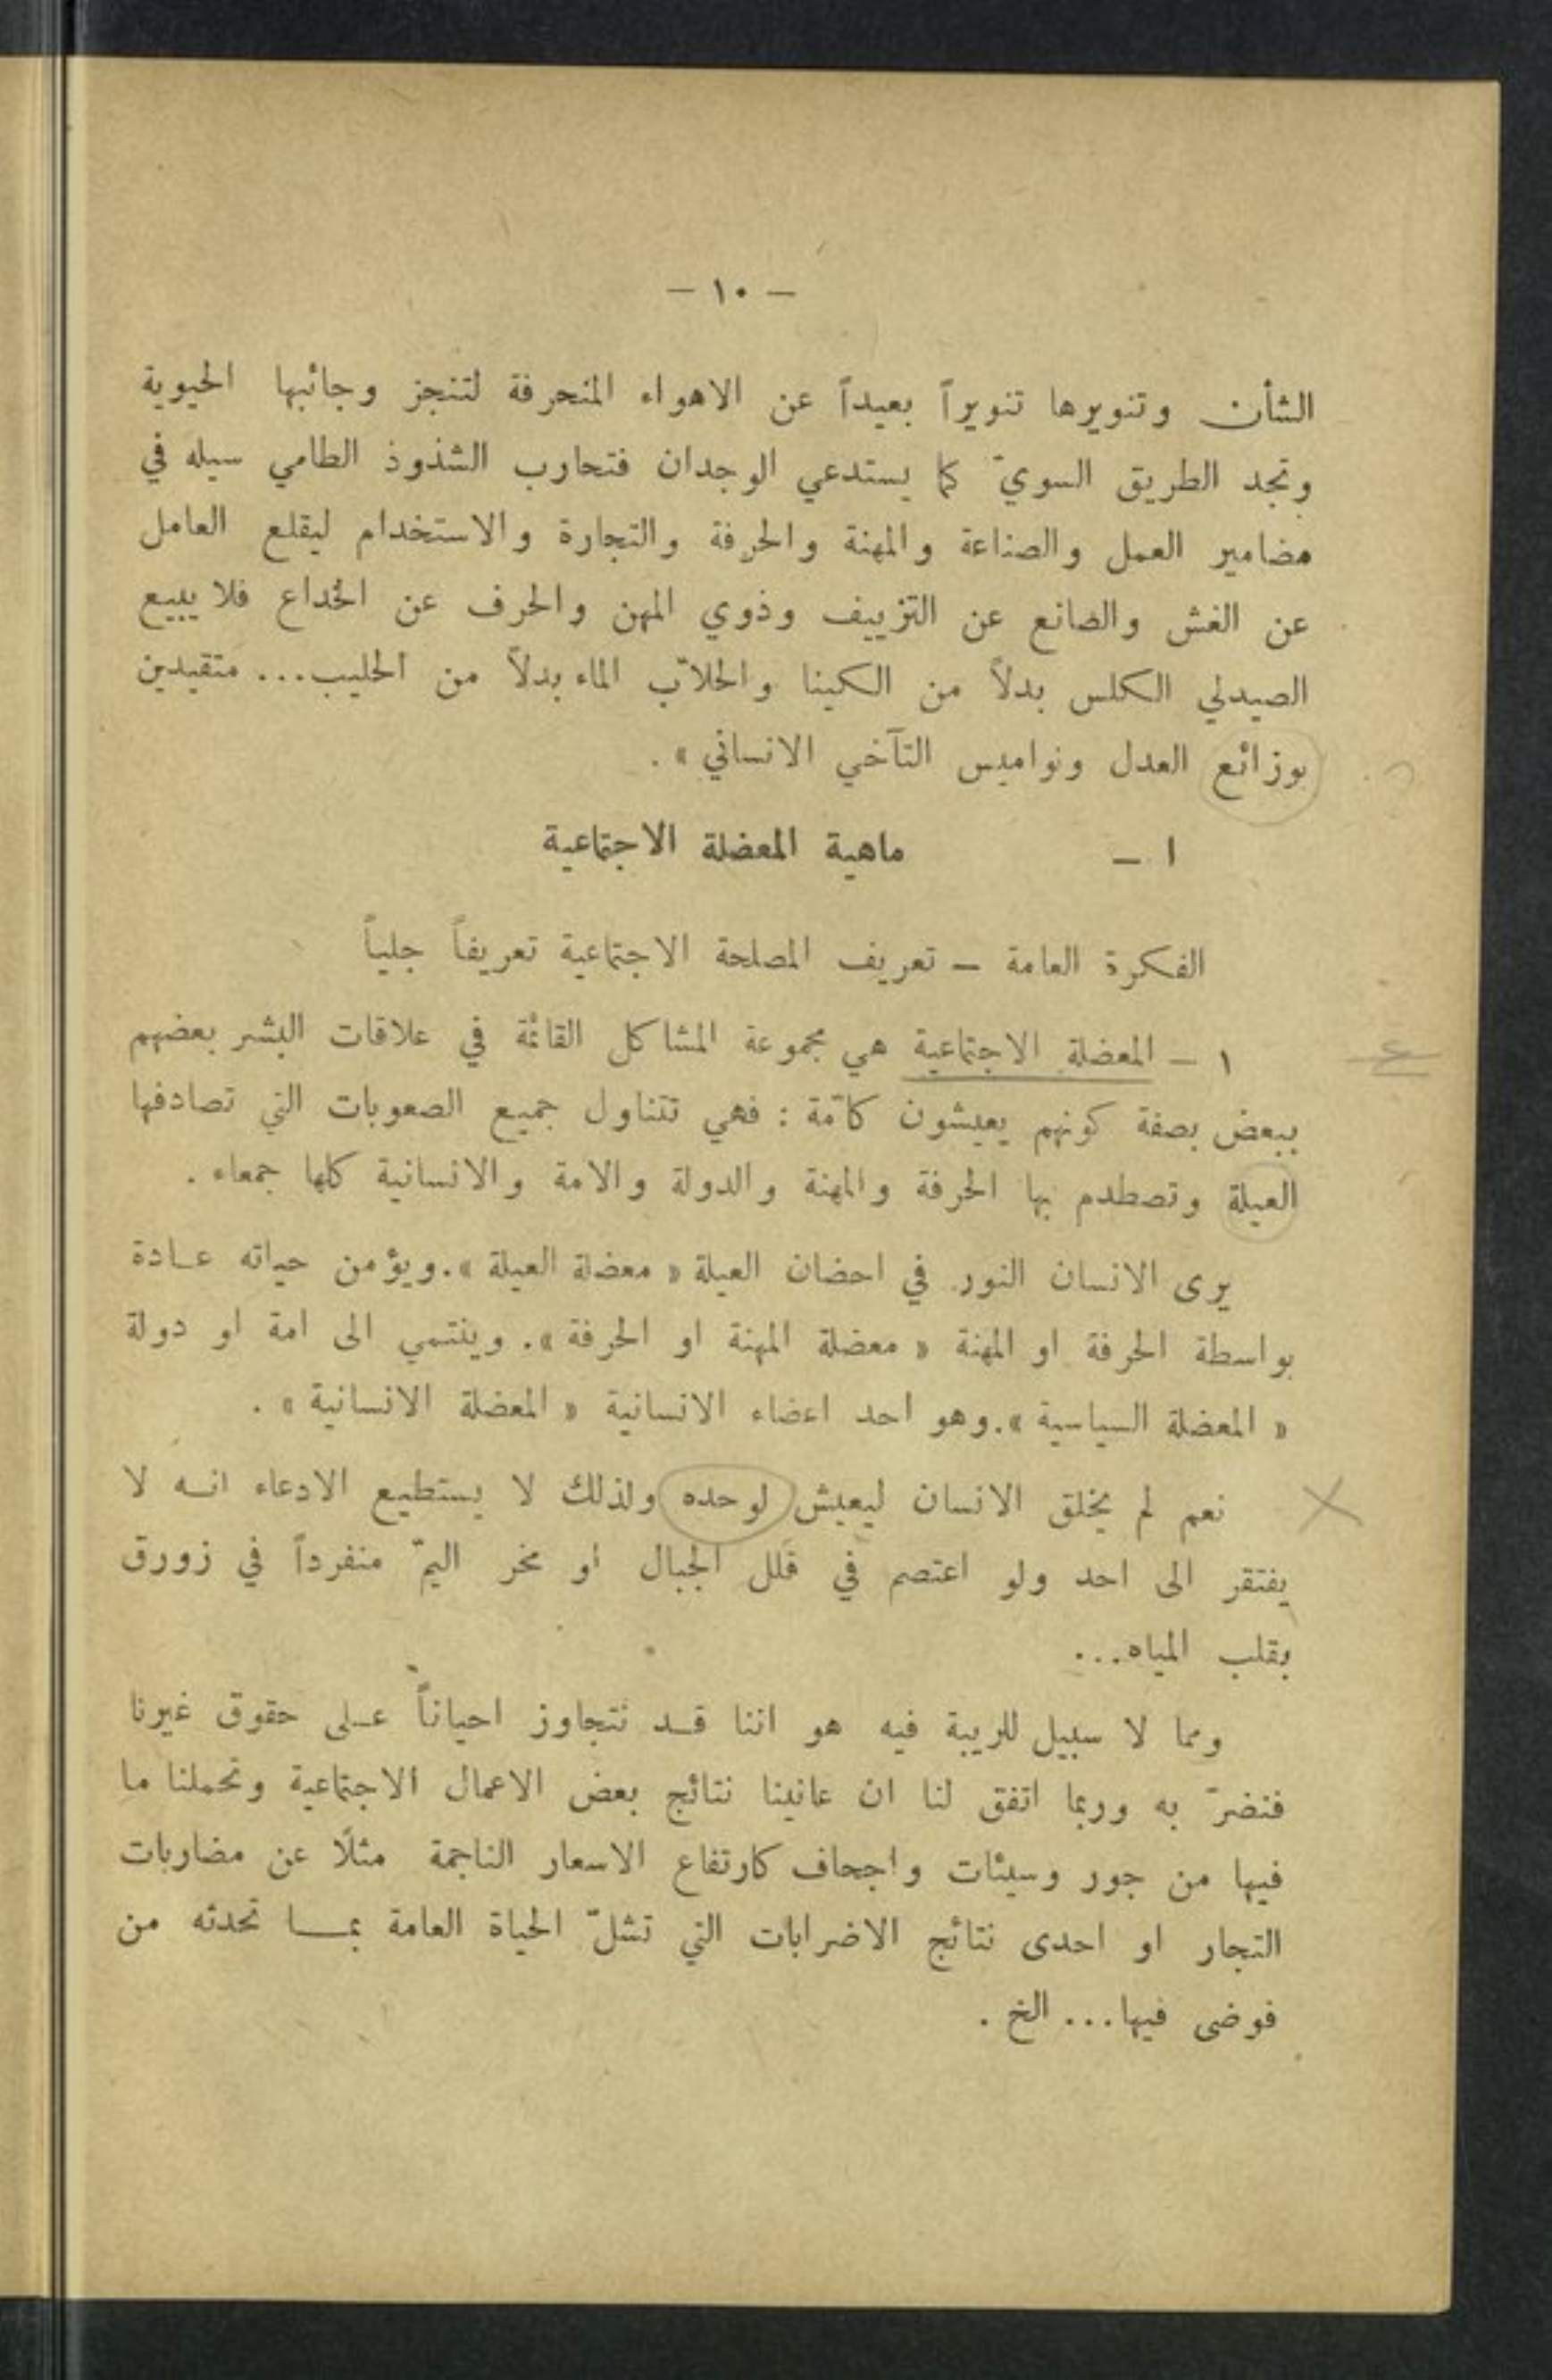 — ١٠ —
الشأن وتنويرها تنويراً بعيداً عن الاهواء المنحرفة لتنجز وجائبها الحيوية
وتجد الطريق السويّ كما يستدعي الوجدان فتحارب الشذوذ الطامي سيله في
مضامير العمل والصناعة والمهنة والحرفة والتجارة والاستخدام ليقلع العامل
عن الغش والصانع عن التزييف وذوي المهن والحرف عن الخداع فلا يبيع
الصيدلي الكلس بدلاً من الكينا والحلاّب الماء بدلاً من الحليب... متقيدين
بوزائع العدل ونواميس التآخي الانساني » .
ا — ماهية المعضلة الاجتماعية
الفكرة العامة — تعريف المصلحة الاجتماعية تعريفاً جلياً
١ — المعضلة الاجتماعية هي مجموعة المشاكل القائمة في علاقات البشر بعضهم
ببعض بصفة كونهم يعيشون كأمة : فهي تتناول جميع الصعوبات التي تصادفها
العيلة وتصطدم بها الحرفة والمهنة والدولة والامة والانسانية كلها جمعاء .
يرى الانسان النور في احضان العيلة « معضلة العيلة ». ويؤمن حياته عادة
بواسطة الحرفة او المهنة « معضلة المهنة او الحرفة ». وينتمي الى امة او دولة
« المعضلة السياسية ». وهو احد اعضاء الانسانية « المعضلة الانسانية » .
نعم لم يخلق الانسان ليعيش لوحده ولذلك لا يستطيع الادعاء انه لا
يفتقر الى احد ولو اعتصم في قلل الجبال او مخر اليمّ منفرداً في زورق
بقلب المياه...
ومما لا سبيل للريبة فيه هو اننا قد نتجاوز احياناً على حقوق غيرنا
فنضرّ به وربما اتفق لنا ان عانينا نتائج بعض الاعمال الاجتماعية وتحملنا ما
فيها من جور وسيئات واجحاف كارتفاع الاسعار الناجمة مثلًا عن مضاربات
التجار او احدى نتائج الاضرابات التي تشلّ الحياة العامة بما تحدثه من
فوضى فيها... الخ .